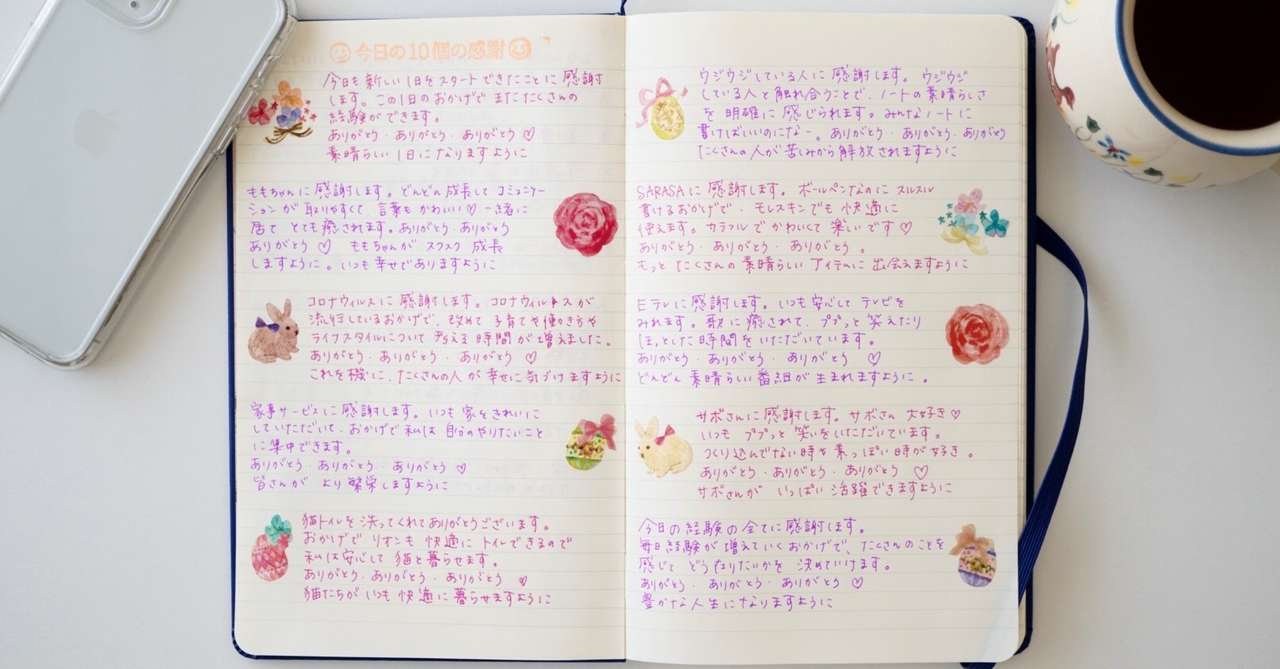 今日の10個の感謝
今日も新しい1日をスタートできたことに感謝
します。この1日のおかげでまたたくさんの
経験ができます。
ありがとう・ありがとう・ありがとう♡
素晴らしい1日になりますように
ももちゃんに感謝します。どんどん成長してコミュニケー
ションが取りやすくて言葉もかわいい♡一緒に
居てとても癒されます。ありがとう・ありがとう
ありがとう♡ ももちゃんがスクスク成長
しますように。いつも幸せでありますように
コロナウィルスに感謝します。コロナウィルスが
流行しているおかげで、改めて子育てや働き方や
ライフスタイルについて考える時間が増えました。
ありがとう・ありがとう・ありがとう♡
これを機に、たくさんの人が幸せに気づけますように
家事サービスに感謝します。いつも家をきれいに
していただいて、おかげで私は自分のやりたいこと
に集中できます。
ありがとう・ありがとう・ありがとう♡
皆さんがより繁栄しますように
猫トイレを洗ってくれてありがとうございます。
おかげでリオンも快適にトイレできるので
私は安心して猫と暮らせます。
ありがとう・ありがとう・ありがとう♡
猫たちがいつも快適に暮らせますように
ウジウジしている人に感謝します。ウジウジ
している人と触れ合うことで、ノートの素晴らしさ
を明確に感じられます。みんなノートに
書けばいいのになー。ありがとう・ありがとう・ありがとう
たくさんの人が苦しみから解放されますように
SARASAに感謝します。ボールペンなのにスルスル
書けるおかげで、モレスキンでも快適に
使えます。カラフルでかわいくて楽しいです♡
ありがとう・ありがとう・ありがとう。
もっとたくさんの素晴らしいアイテムに出会えますように
Eテレに感謝します。いつも安心してテレビを
みれます。歌に癒されて、ププっと笑えたり
ほっとした時間をいただいています。
ありがとう・ありがとう・ありがとう♡
どんどん素晴らしい番組が生まれますように。
サボさんに感謝します。サボさん大好き♡
いつもププっと笑いをいただいています。
つくり込んでない時や素っぽい時が好き。
ありがとう・ありがとう・ありがとう♡
サボさんがいっぱい活躍できますように
今日の経験の全てに感謝します。
毎日経験が増えていくおかげで、たくさんのことを
感じてどう在りたいかを決めていけます。
ありがとう・ありがとう・ありがとう♡
豊かな人生になりますように